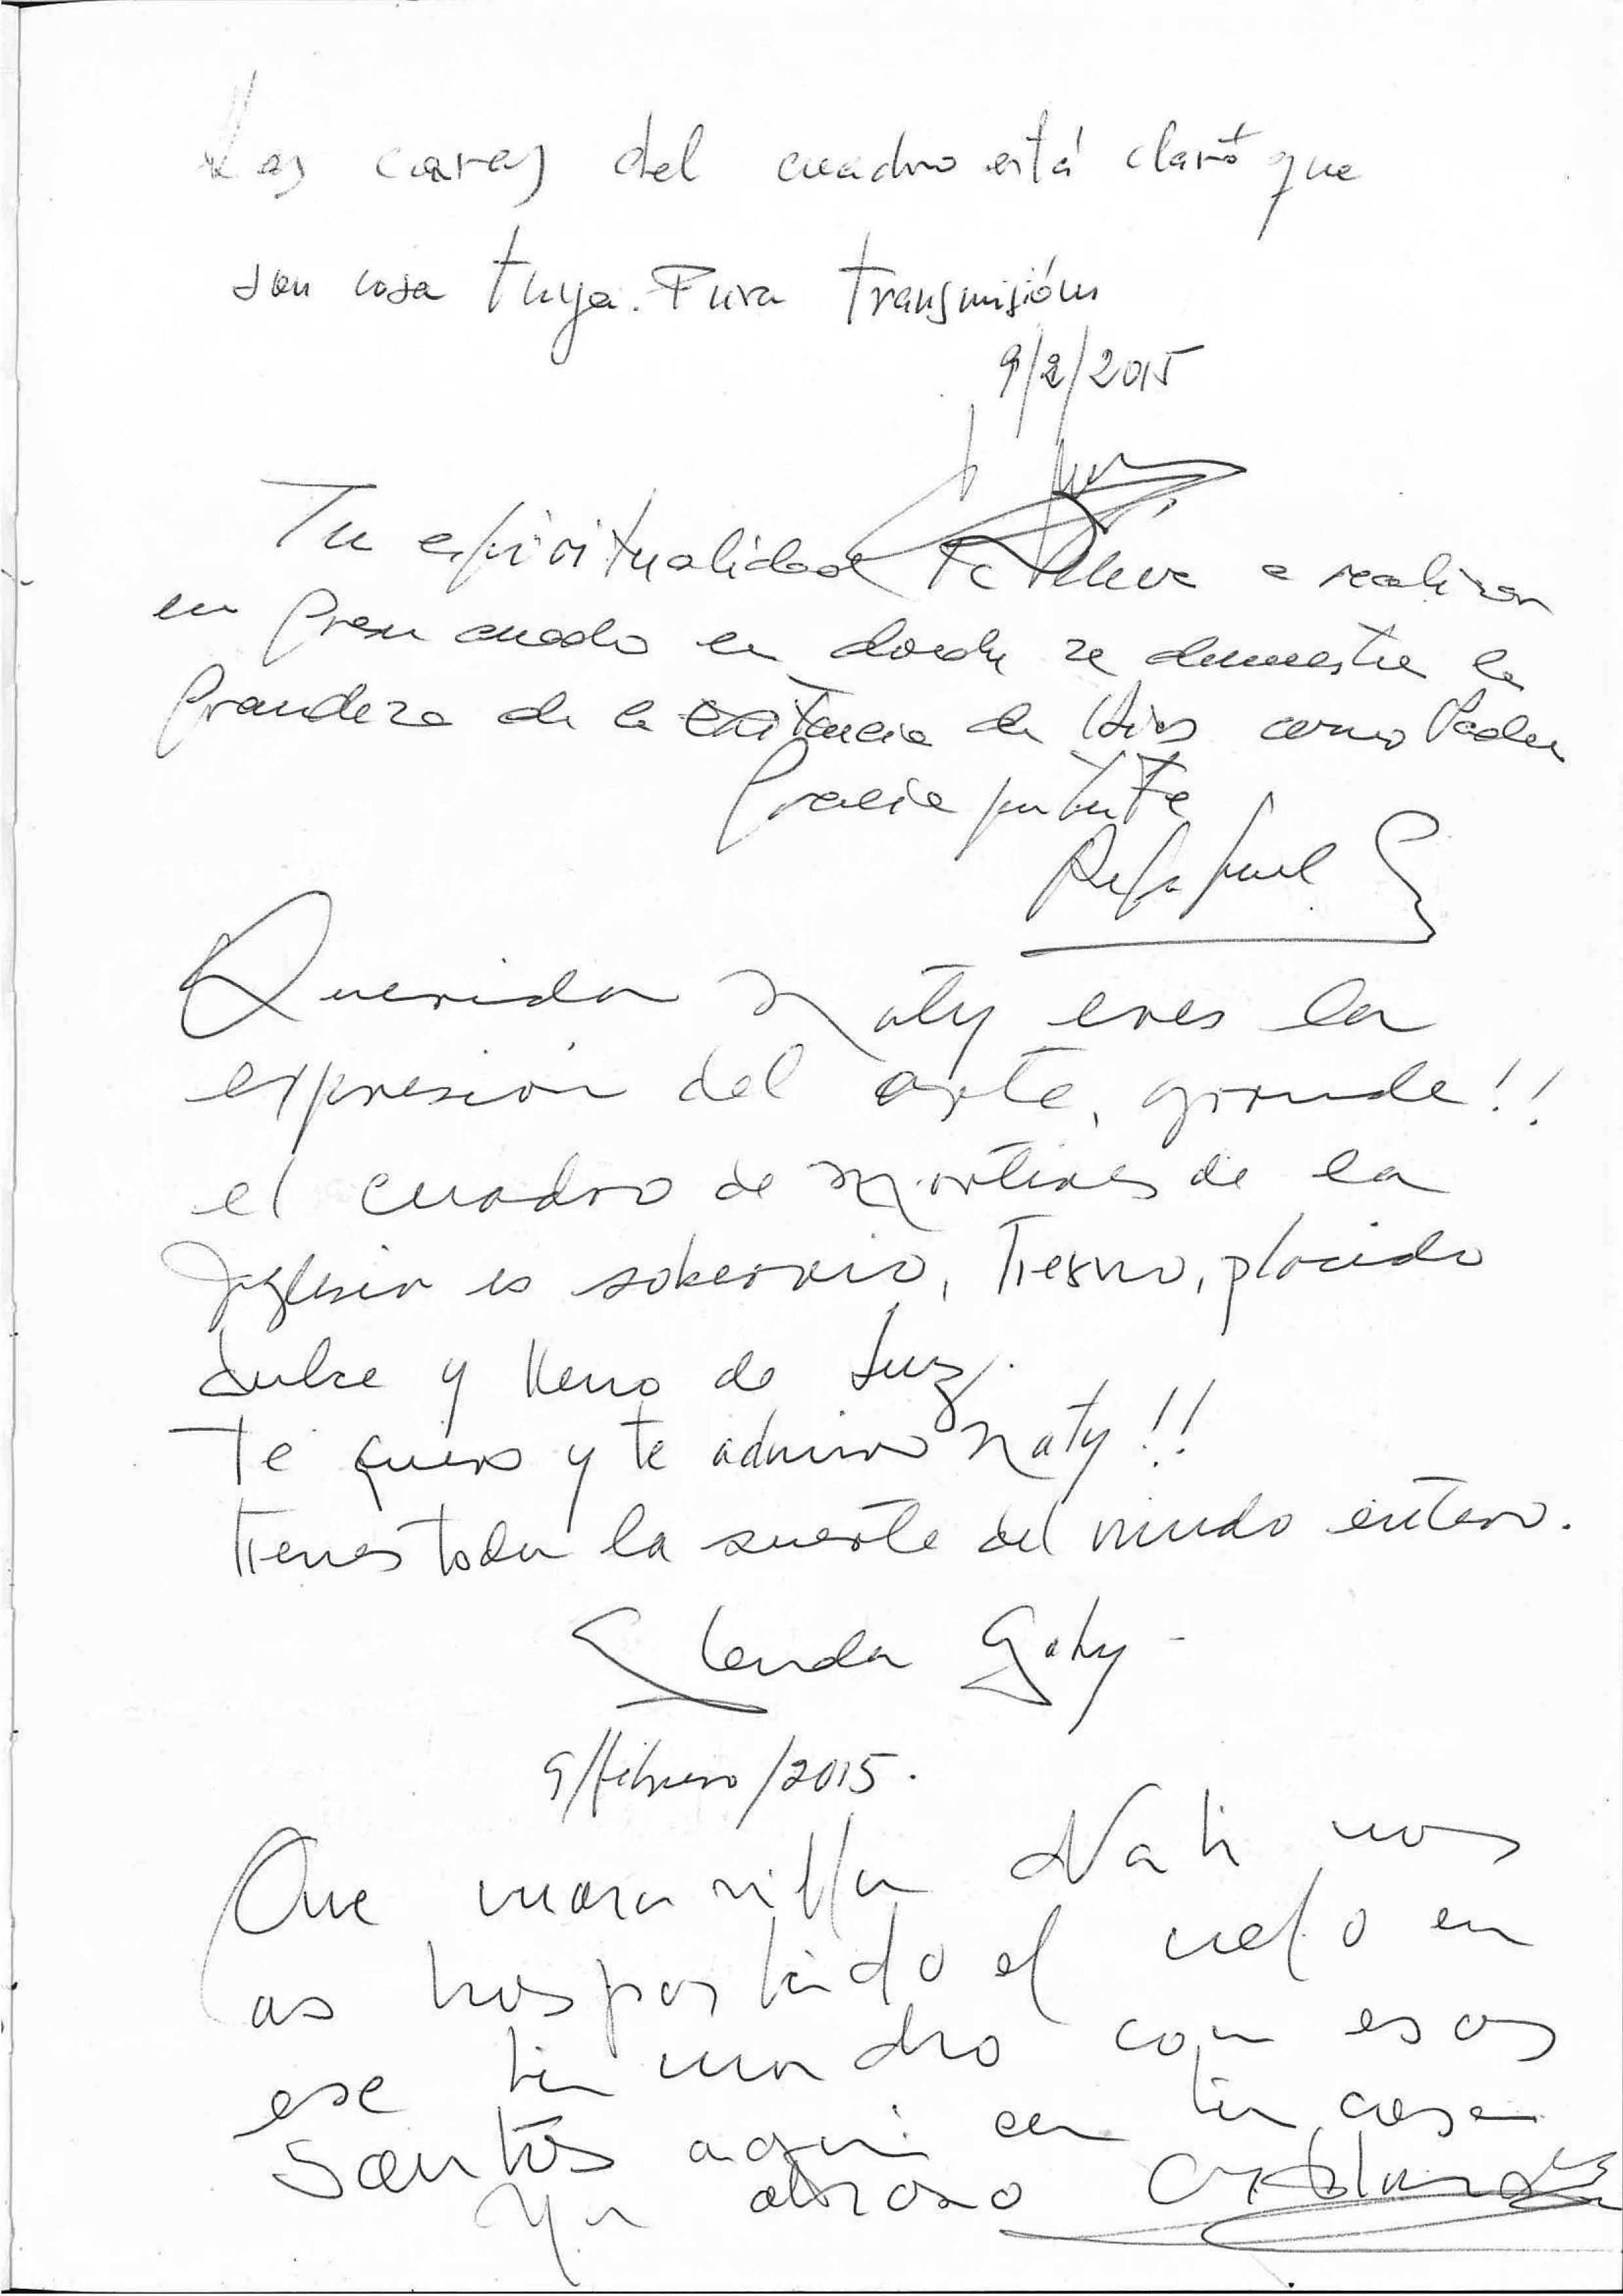 Las caras del cuadro está claro que
son cosa tuya. Pura transmisión
9/2/2015
Tu espiritualidad te lleva a realizar
un gran cuadro en donde se demuestra la
grandeza de la existencia de Dios como Padre
Gracia por tu Fe
Rafael
Querida Naty eres la
expresión del arte, grande!!
el cuadro de Mártires de la
Iglesia es soberbio, Tierno, placido
dulce y lleno de luz.
Te quiero y te admiro Naty!!
tienes toda la suerte del mundo entero.
Glenda Gaby
9/febrero/2015.
Que maravilla Nati nos
as trasportado el cielo en
ese tu cuadro con esos
Santos aqui en tu casa
Un abrazo